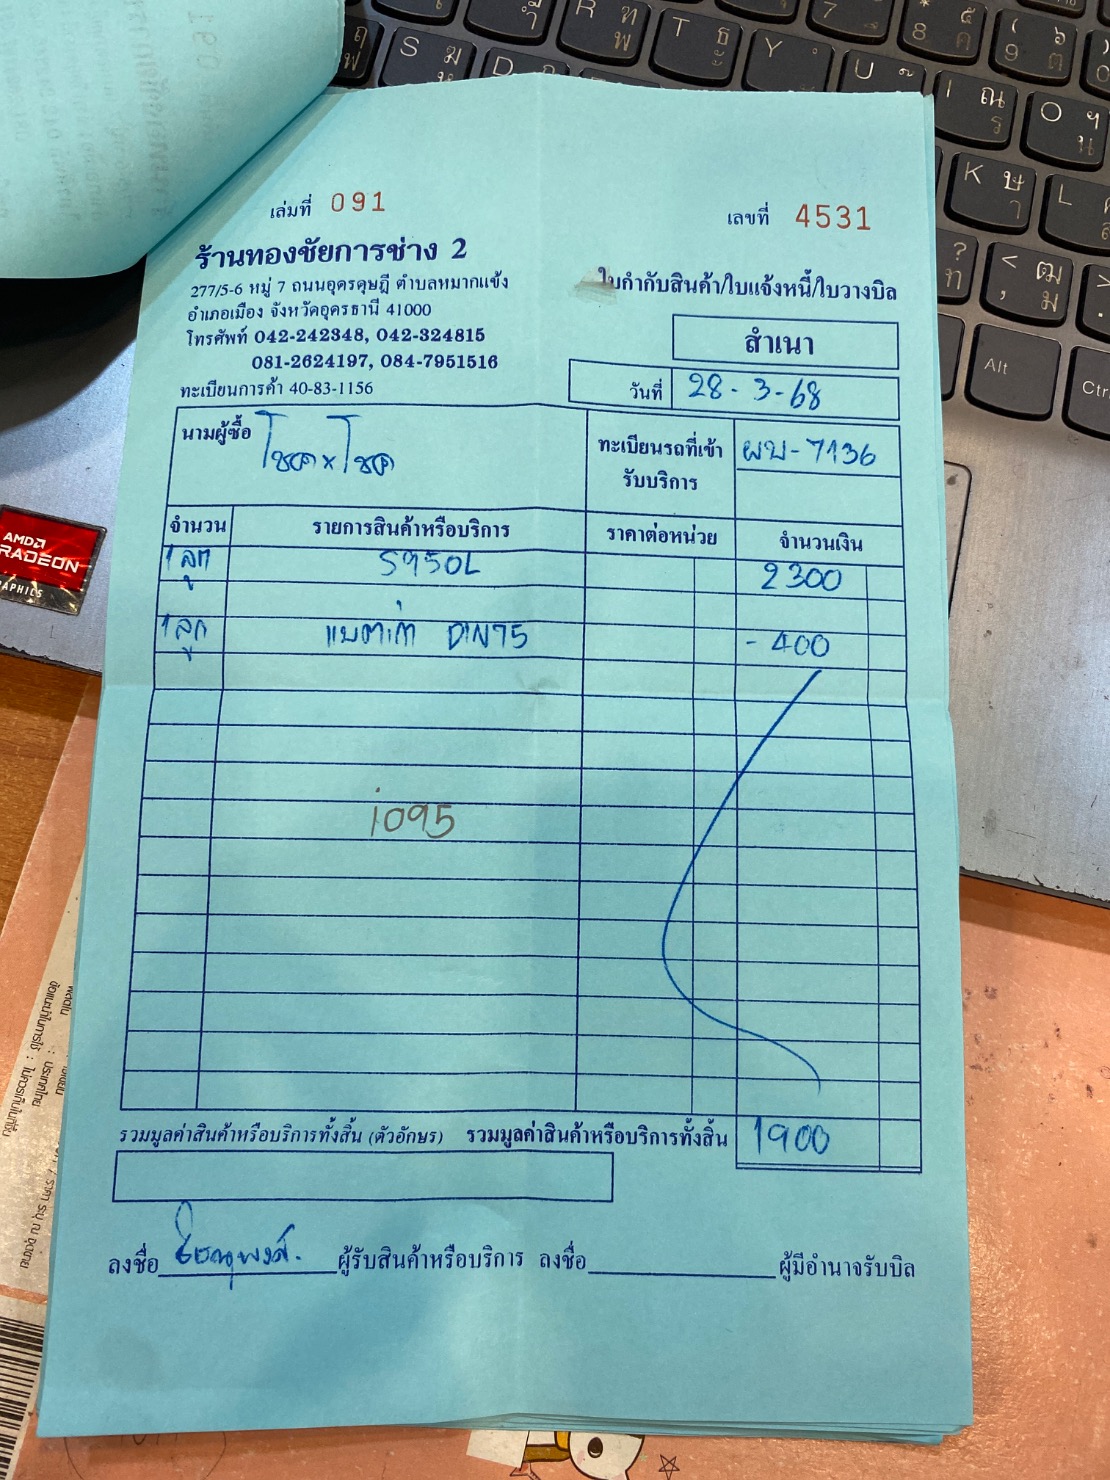 เล่มที่ 091
เลขที่ 4531
ร้านทองชัยการช่าง 2
277/5-6 หมู่ 7 ถนนอุดรดุษฎี ตำบลหมากแข้ง
อำเภอเมือง จังหวัดอุดรธานี 41000
โทรศัพท์ 042-242348, 042-324815
081-2624197, 084-7951516
ทะเบียนการค้า 40-83-1156
ใบกำกับสินค้า/ใบแจ้งหนี้/ใบวางบิล
สำเนา
วันที่ 28-3-68
นามผู้ซื้อ โชค x โชค
ทะเบียนรถที่เข้า
รับบริการ
ผบ-7136
จำนวน รายการสินค้าหรือบริการ ราคาต่อหน่วย จำนวนเงิน
1 ลูก S950L 2300
1 ลูก แบตเก่า DIN75 -400
i095
รวมมูลค่าสินค้าหรือบริการทั้งสิ้น (ตัวอักษร) รวมมูลค่าสินค้าหรือบริการทั้งสิ้น 1900
ลงชื่อ ผู้รับสินค้าหรือบริการ ลงชื่อ ผู้มีอำนาจรับบิล
AMD
RADEON
GRAPHICS
S ฆ
D
R ฑ พ
T ธ ะ
Y
U
I ณ ร
O ฯ น
K ษ า
L
7
8 ค
9 ต
? ท
< ฒ , ม
Alt
Ctrl